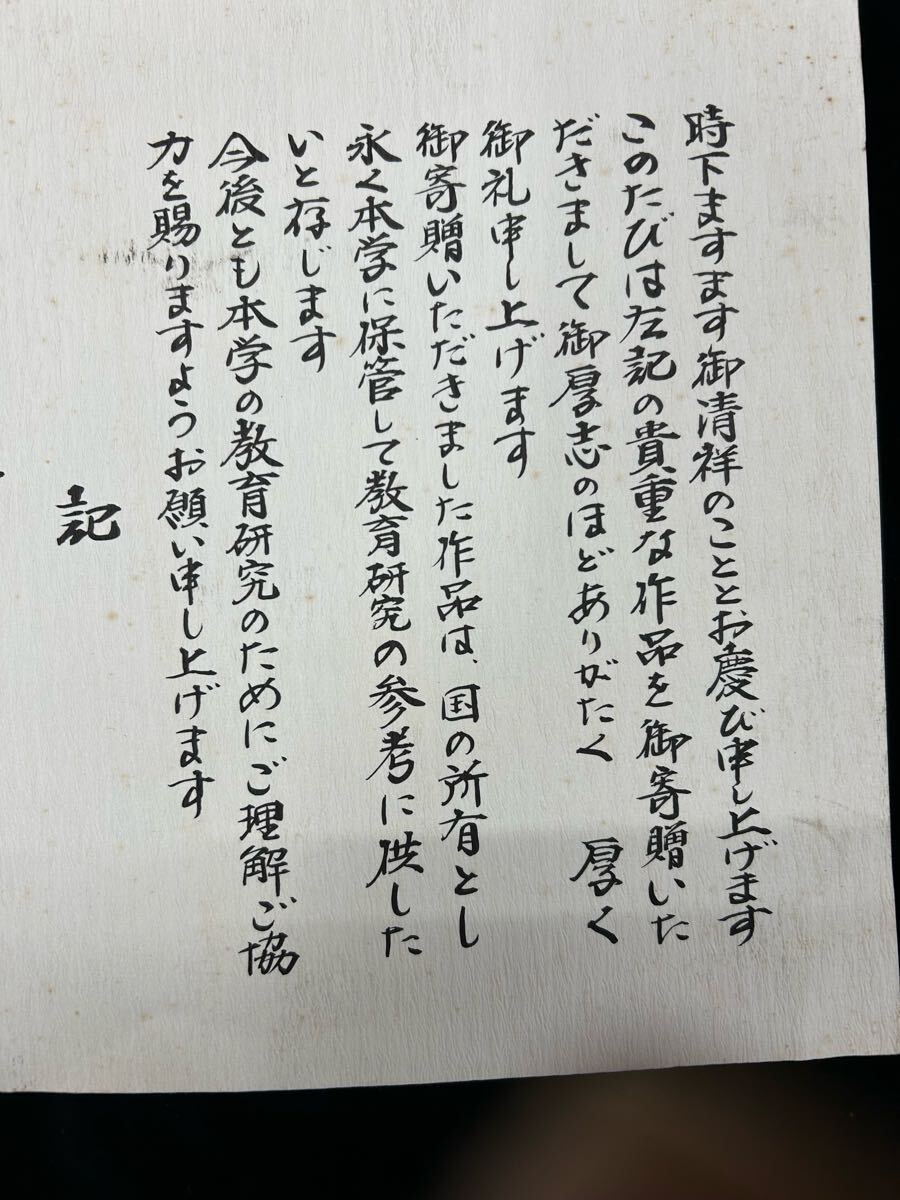 時下ますます御清祥のこととお慶び申し上げます
このたびは左記の貴重な作品を御寄贈いた
だきまして御厚志のほどありがたく　厚く
御礼申し上げます
御寄贈いただきました作品は、国の所有とし
永く本学に保管して教育研究の参考に供した
いと存じます
今後とも本学の教育研究のためにご理解ご協
力を賜りますようお願い申し上げます
記